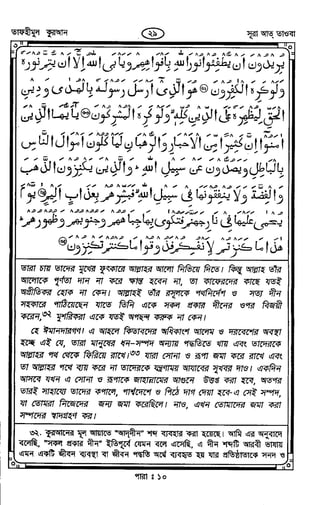 তাফহীমুল কুরআন
২৯
সূরা আত্ তাওবা
يريدون ان يطفئوا نور الله بافواههم ويابى الله الا ان يتم نوره
ولو كره الكفرون هو الذى ارسل رسوله بالهدى ودين
الحق ليظهره على الدين كله ولو كره المشركون يايها الذين
امنوا ان كثيرا من الاحبار والرهبان لياكلون اموال الناس
بالباطل ويصدون عن سبيل الله والذين يكنزون الذهب
والفضة ولا ينفقونها فى سبيل الله فبشرهم بعذاب اليم يوم
يحمى عليها فى نار جهنم فتكوى بها جباههم وجنوبهم وظهورهم
هذا ما كنزتم لانفسكم فذوقوا ما كنتم تكنزون
তারা চায় তাদের মুখের ফুৎকারে আল্লাহর আলো নিভিয়ে দিতে। কিন্তু আল্লাহ তাঁর
আলোকে পূর্ণতা দান না করে ক্ষান্ত হবেন না, তা কাফেরদের কাছে যতই
অপ্রীতিকর হোক না কেন। আল্লাহই তাঁর রসূলকে পথনির্দেশ ও সত্য দীন
সহকারে পাঠিয়েছেন যাতে তিনি একে সকল প্রকার দীনের ওপর বিজয়ী
করেন,৩২ মুশরিকরা একে যতই অপছন্দ করুক না কেন।
হে ঈমানদারগণ! এ আহলে কিতাবদের অধিকাংশ আলেম ও দরবেশের অবস্থা
হচ্ছে এই যে, তারা মানুষের ধন-সম্পদ অন্যায় পদ্ধতিতে খায় এবং তাদেরকে
আল্লাহর পথ থেকে ফিরিয়ে রাখে।৩৩ যারা সোনা ও রূপা জমা করে রাখে এবং
তা আল্লাহর পথে ব্যয় করে না তাদেরকে যন্ত্রণাময় আযাবের সুখবর দাও। একদিন
আসবে যখন এ সোনা ও রূপাকে জাহান্নামের আগুনে উত্তপ্ত করা হবে, অতপর
তারই সাহায্যে তাদের কপালে, পার্শ্বদেশে ও পিঠে দাগ দেয়া হবে-এ সেই সম্পদ,
যা তোমরা নিজেদের জন্য জমা করেছিলে। নাও, এখন তোমাদের জমা করা
সম্পদের স্বাদগ্রহণ কর।
৩২. কুরআনের মূল আয়াতে "আদ্দীন" শব্দ ব্যবহার করা হয়েছে। আমি এর অনুবাদে
বলেছি, "সকল প্রকার দীন" ইতিপূর্বে যেমন বলে এসেছি, এ দীন শব্দটি আরবী ভাষায়
এমন একটি জীবন ব্যবস্থা বা জীবন পদ্ধতি অর্থে ব্যবহৃত হয় যার প্রতিষ্ঠাতাকে সনদ ও
পারা : ১০